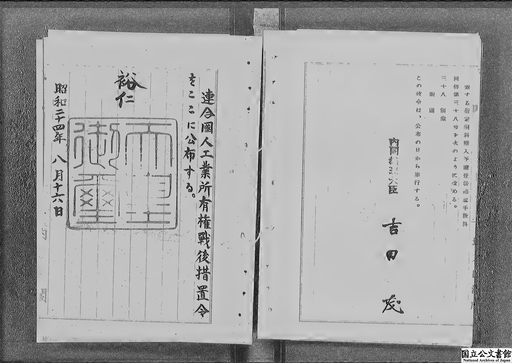 三十八 削除
附則
この政令は、公布の日から施行する。
内閣総理大臣 吉田茂
連合国人工業所有権戦後措置令
をここに公布する。
裕仁
天皇御璽
昭和二十四年八月十六日
国立公文書館
National Archives of Japan